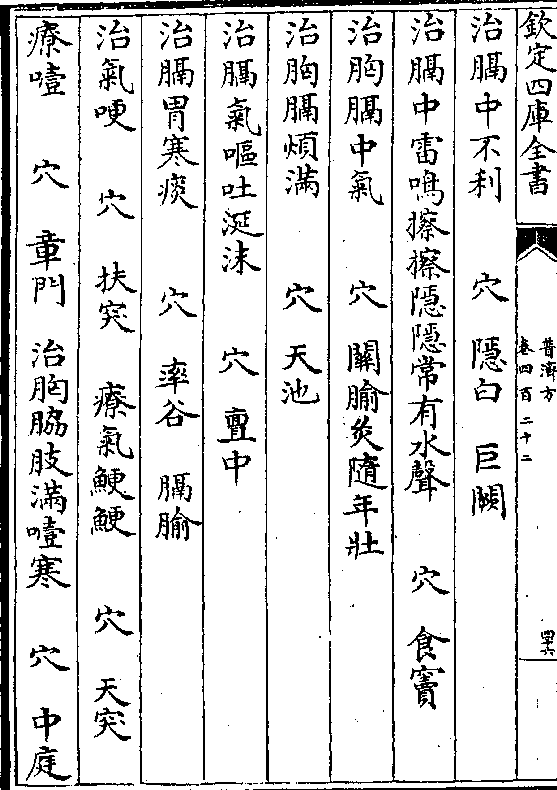 欽定四庫全書
普濟方
卷四百二十二
四十六
治膈中不利 穴 隱白 巨闕
治膈中雷鳴擦擦隱隱常有水聲 穴 食竇
治胸膈中氣 穴 關腧灸隨年壯
治胸膈煩滿 穴 天池
治膈氣嘔吐涎沫 穴 亶中
治膈胃寒痰 穴 率谷 膈腧
治氣哽 穴 扶突 療氣鯁鯁 穴 天突
療噎 穴 章門 治胸脇肢滿噎寒 穴 中庭